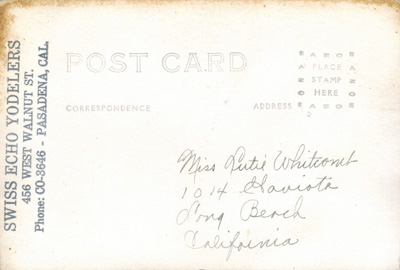 SWISS ECHO YODELERS
456 WEST WALNUT ST.
Phone: CO-3646 - PASADENA, CAL.
POST CARD
CORRESPONDENCE
ADDRESS
PLACE
STAMP
HERE
Miss Lutie Whitcomb
1014 Gaviota
Long Beach
California